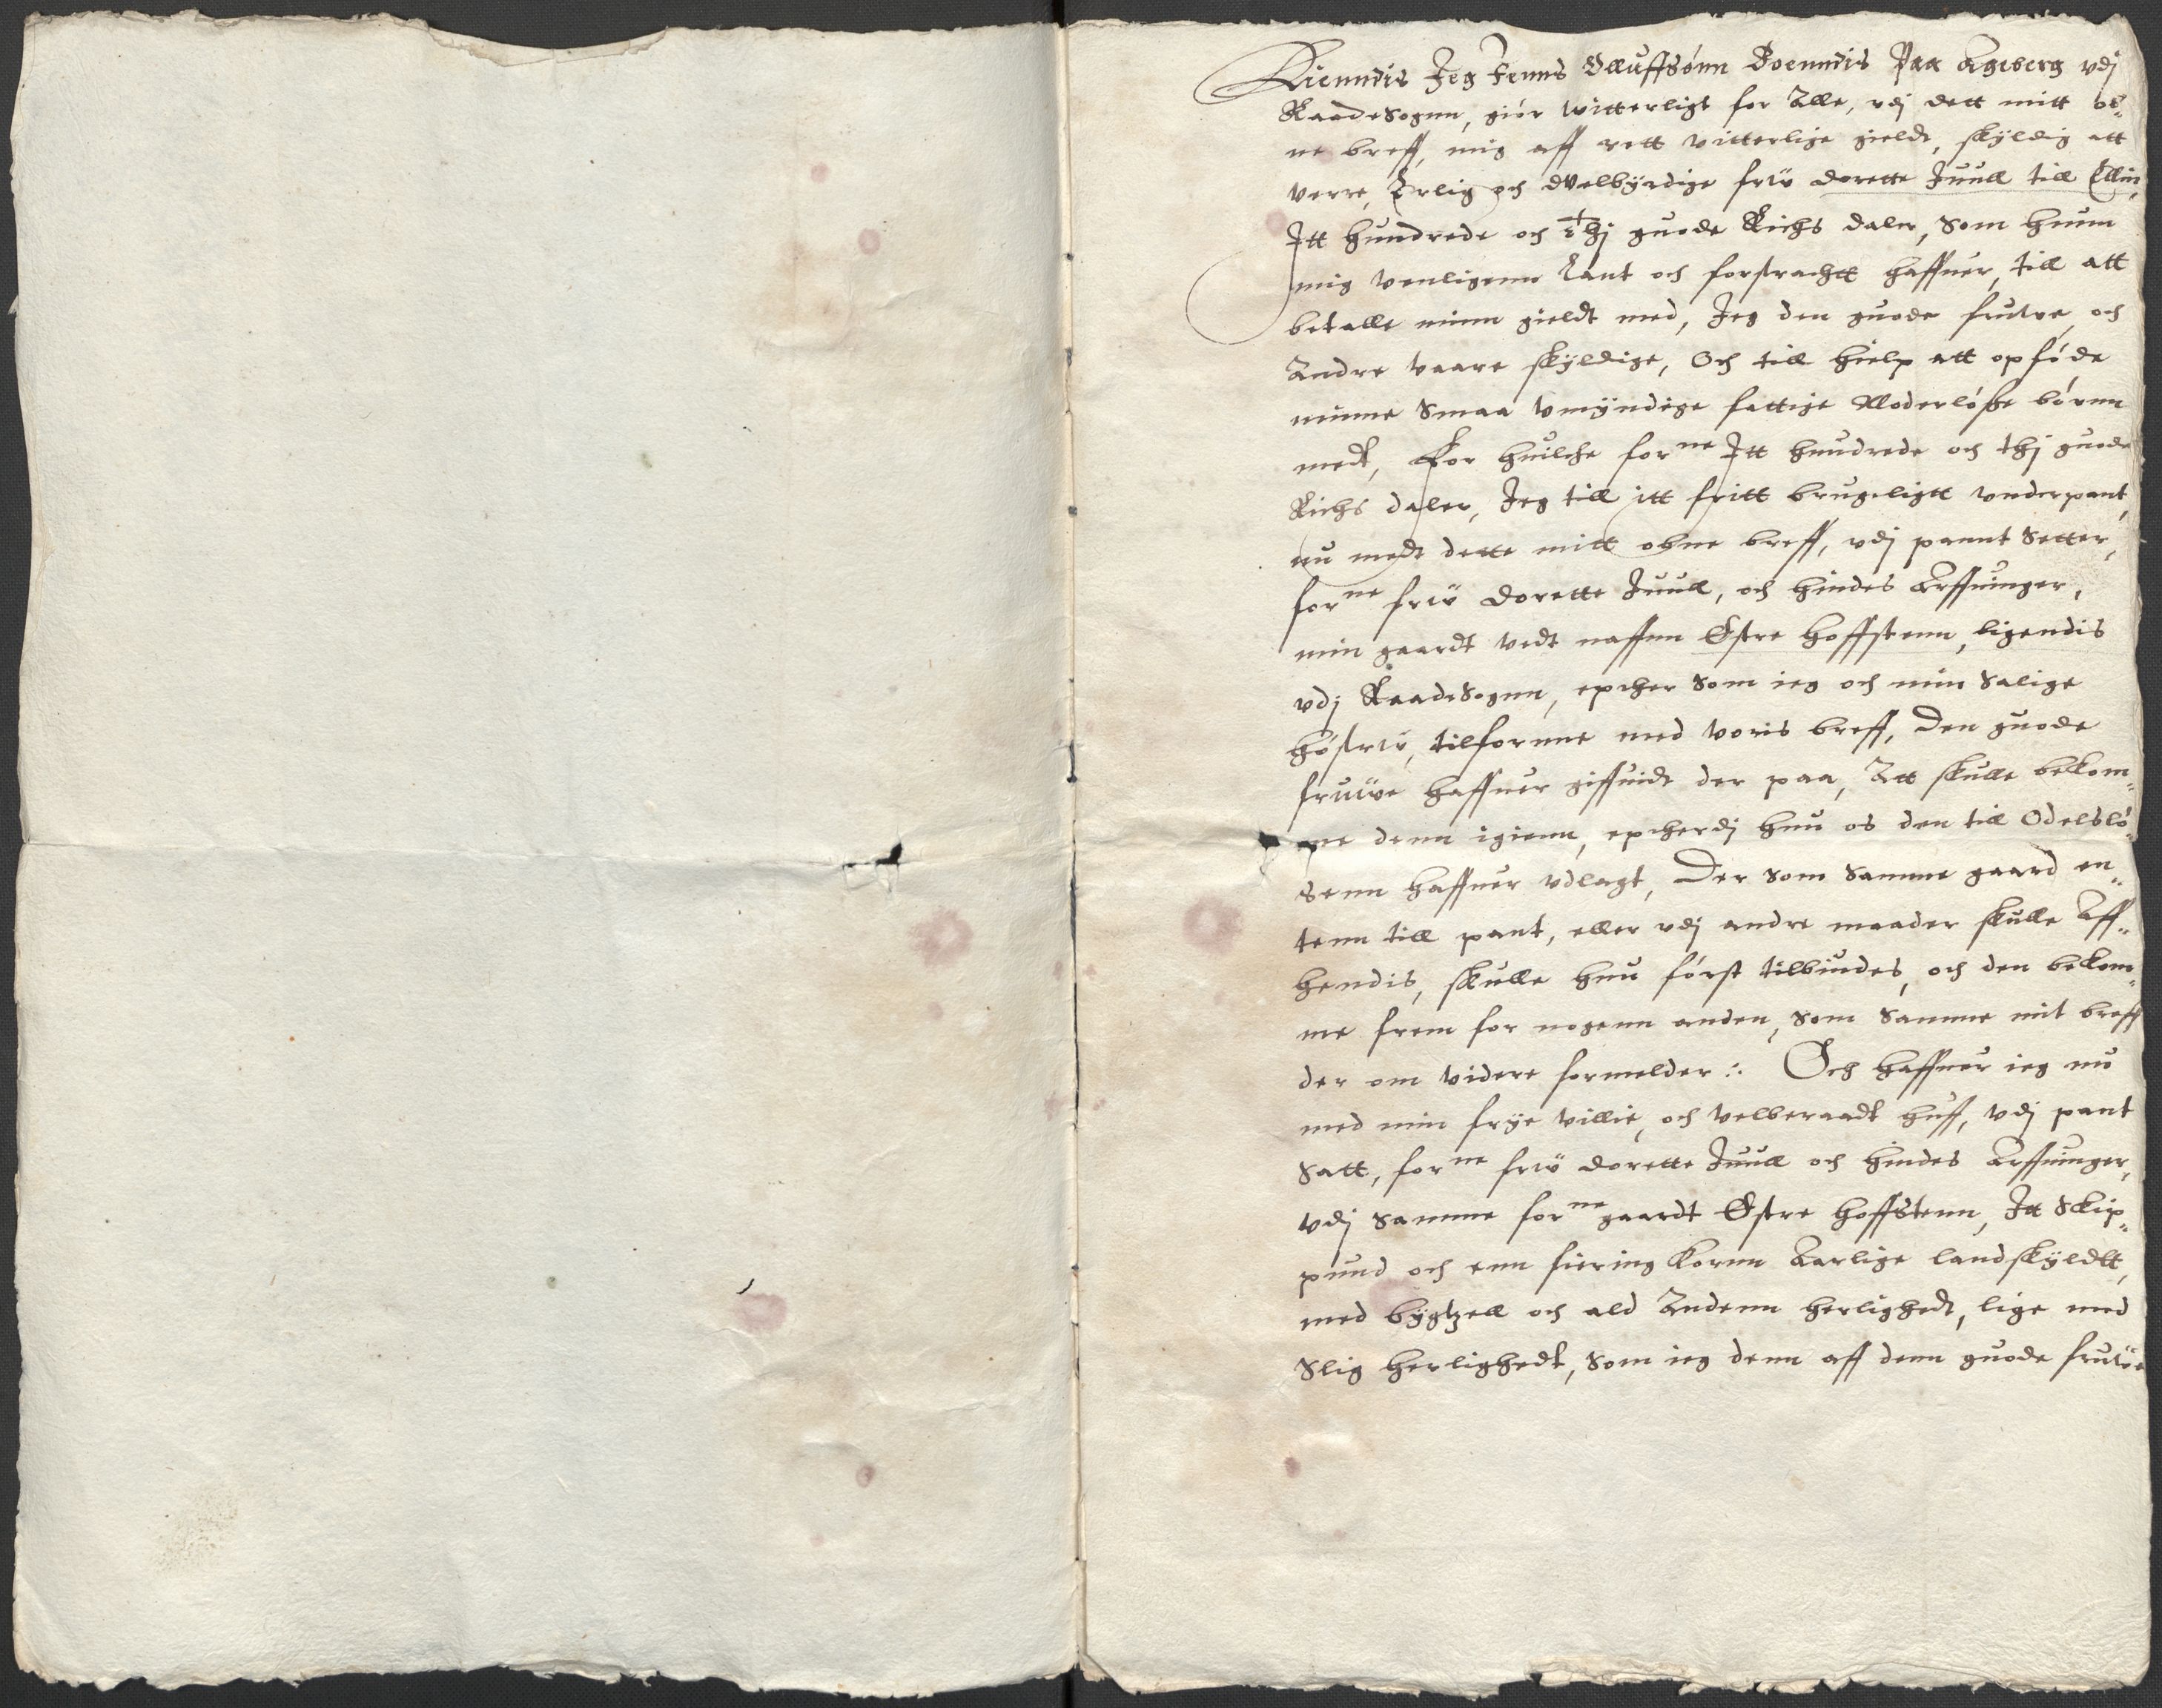 Kienndis Jeg Jenns Olluffsønn Boenndis Paa Ageberg vdj
Raadesognn, giør witterligt for Alle, vdj dett mitt ob„
ne breff, mig aff rett vitterlige gieldt, skÿldig att
verre, Erlig och Welbÿrdige frw Dorette Juull till Ellin,
Itt hundrede och thj guode Richs daler, Som hunn
mig venligenn Lant och forstrachtt haffuer, till att
betalle minn gieldt med, Jeg den guode fruwe, och
Andre vaare skÿldige, Och till hielp att opføde
minne Smaa vmÿndige fattige Moderløße børnn
medt, For huilche forne Itt hundrede och thj guode
Richs daler, Jeg till itt fritt brugeligtt vnderpant,
nu medt dette mitt obne breff, vdj pannt Setter,
forne frw Dorette Juull, och hindes Arffuinger,
min gaardt vedt naffnn Østre Hoffstenn, ligendis
vdj Raadesognn, epther Som ieg och min Salige
høstrw, tilfornne med voris breff, Den guode
fruwe haffuer giffuidt der paa, Att skulle bekom„
me denn igienn, eptherdj hun os den till Odelslø„
senn haffuer vdlagt, Der Som Samme gaard en„
tenn till pant, eller vdj andre maader skulle Aff„
hendis, skulle hun først tilbiudes, och den bekom„
me frem for nogenn anden, Som Samme mit breff
der om videre formelder :. Och haffuer ieg nu
med min frÿe villie, och velberaadt huff, vdj pant
Satt, forne frw Dorette Juull och hindes Arffuinger,
vdj Samme forne gaardt Østre Hoffstenn, Itt Skip„
pund och enn fiering Kornn Aarlige landskÿldtt,
med bÿgtzell och ald Andenn herlighedt, lige med
Slig herlighedt, Som ieg denn aff denn guode fruwe